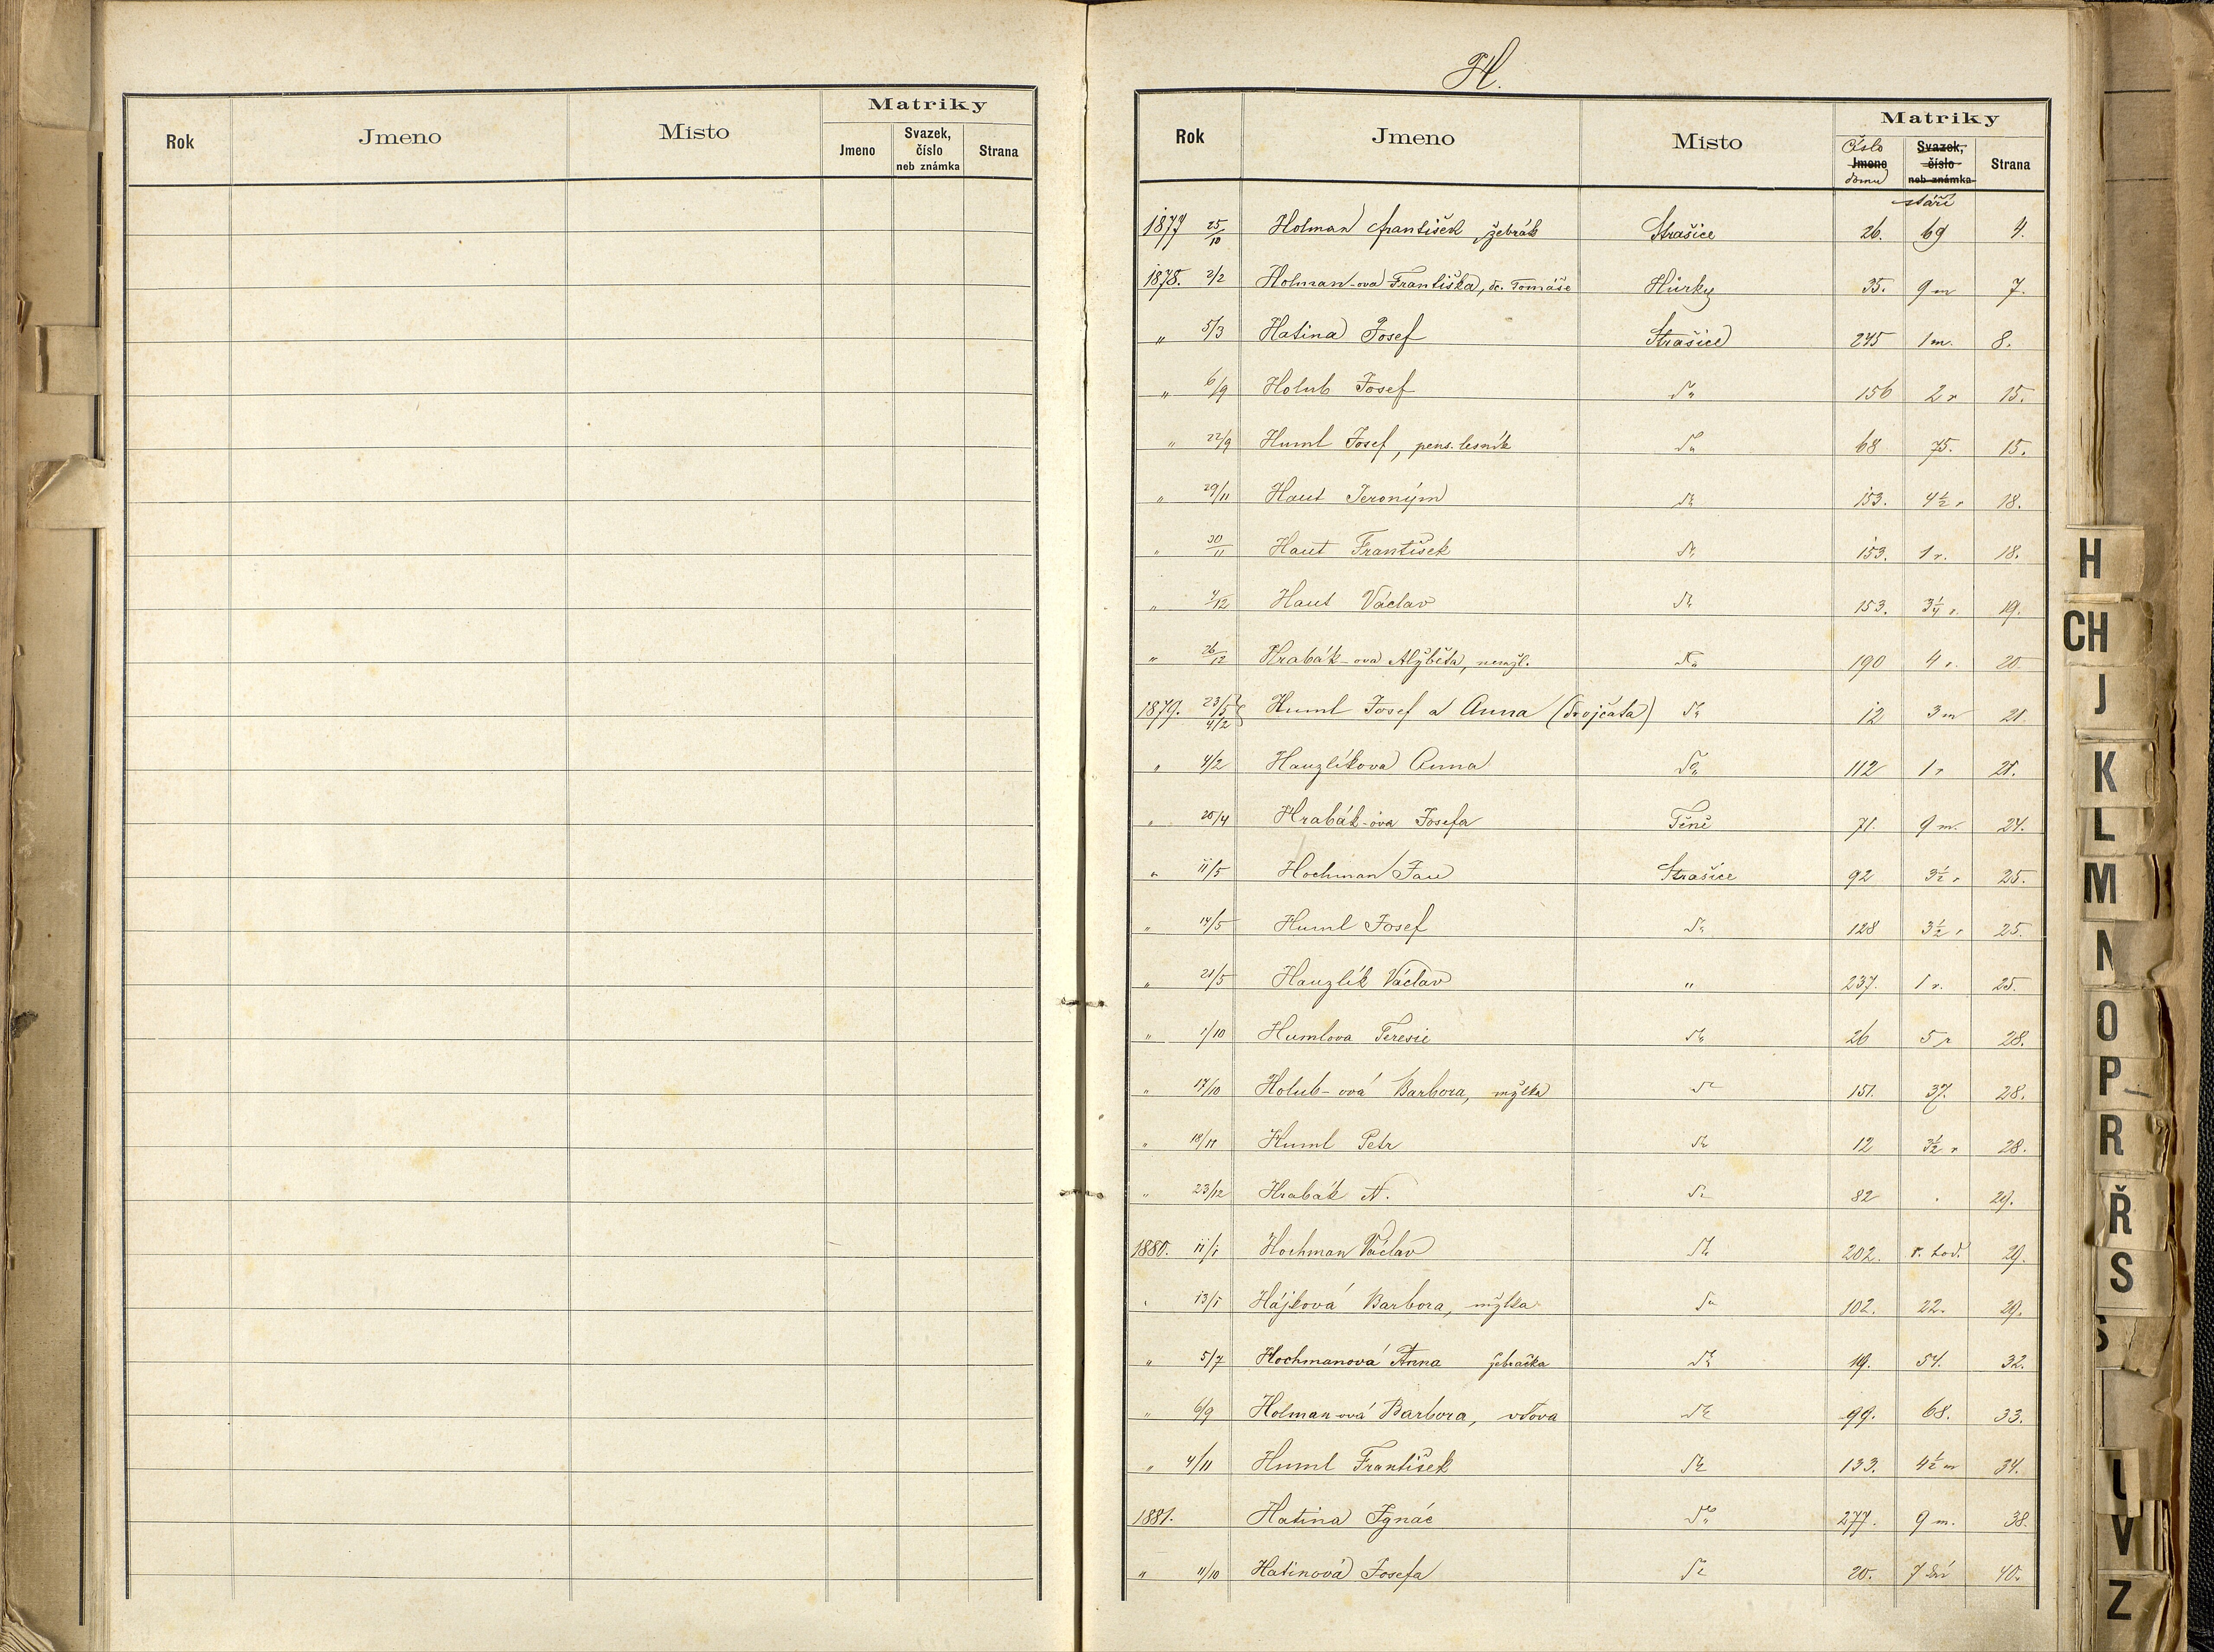 Matriky
Rok Jmeno Místo Jmeno Svazek, číslo neb známka Strana
H.
Matriky
Rok Jmeno Místo Číslo Jmeno domu Svazek, číslo neb známka stáří Strana
1877 25/10 Holman František, žebrák Strašice 26. 69 4.
1878. 2/2 Holman-ova Františka, dc. Tomáše Hůrky 35. 9 m 7.
" 5/3 Hatina Josef Strašice 245 1 m. 8.
" 6/9 Holub Josef 156 2 r 15.
" 22/9 Huml Josef, pens. lesník 68 75. 15.
" 29/11 Haut Jeroným 153. 4½ r 18.
" 30/11 Haut František 153. 1 r. 18.
" 4/12 Haut Václav 153. 3¼ r. 19.
" 26/12 Hrabák-ova Alžběta, nemžl. 190 4 r. 20.
1879. 23/5 4/2 Huml Josef a Anna (dvojčata) 12 3 m 21
" 4/2 Hauzlíkova Anna 112 1 r 21.
" 20/4 Hrabák-ova Josefa Těně 71. 9 m. 24.
" 11/5 Hochman Jan Strašice 92 3½ r 25.
" 14/5 Huml Josef 128 3½ r 25.
" 21/5 Hauzlík Václav " 237. 1 r. 25.
" 1/10 Humlova Teresie 26 5 r 28.
" 17/10 Holub-ová Barbora, mžlka 151. 37. 28.
" 18/11 Huml Petr 12 3½ r 28.
" 23/12 Hrabák N. 82 29.
1880. 11/1 Hochman Václav 202. hod. 29.
" 13/1 Hájková Barbora, mžlka 102. 22. 29.
" 5/7 Hochmanová Anna žebračka 19. 54. 32.
" 6/9 Holman-ová Barbora, vdova 99. 68. 33.
" 4/11 Huml František 133. 4½ m 34.
1881. Hatina Ignác 277. 9 m. 38.
" 11/10 Hatinová Josefa 20. 7 dní 40.
H
CH
J
K
L
M
N
O
P
R
Ř
S
U
V
Z